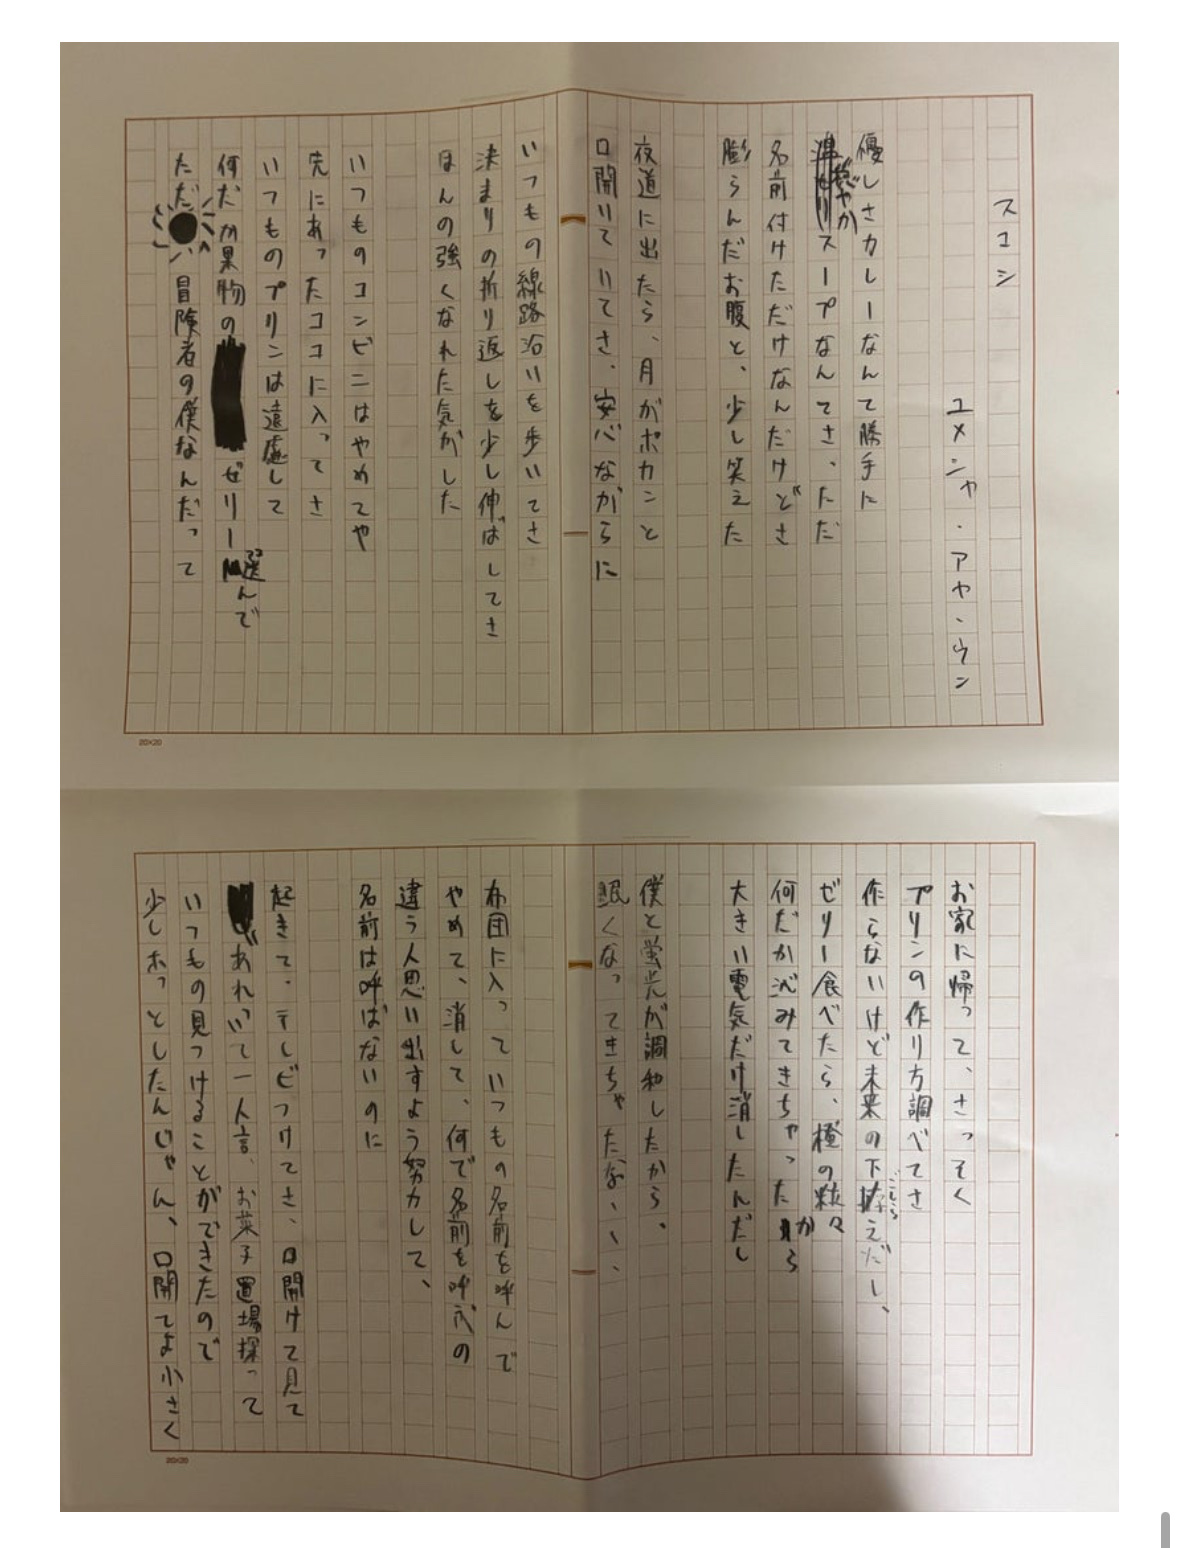 スコシ
ユメンシャ・アヤ・ウン
優しさカレーなんて勝手に
穏やかスープなんてさ、ただ
名前付けただけなんだけどさ
膨らんだお腹と、少し笑えた
夜道に出たら、月がポカンと
口開いていてさ、安心ながらに
いつもの線路沿いを歩いてさ
決まりの折り返しを少し伸ばしてさ
ほんの強くなれた気がした
いつものコンビニはやめてや
先にあったココに入ってさ
いつものプリンは遠慮して
何だか果物のゼリー選んで
ただ冒険者の僕なんだって
20×20
お家に帰って、さっそく
プリンの作り方調べてさ
作らないけど未来の下拵えだし、
ごしら
ゼリー食べたら、橙の粒々
何だか沈みてきちゃったから
大きい電気だけ消したんだし
僕と蛍光が調和したから、
眠くなってきちゃたな、、、
布団に入っていつもの名前を呼んで
やめて、消して、何で名前を呼ぶの
違う人思い出すよう努力して、
名前は呼ばないのに
起きて、テレビつけてさ、口開けて見て
あれ、って一人言、お菓子置場探って
いつもの見つけることができたので
少しホっとしたんじゃん、口開てよ小さく
20×20